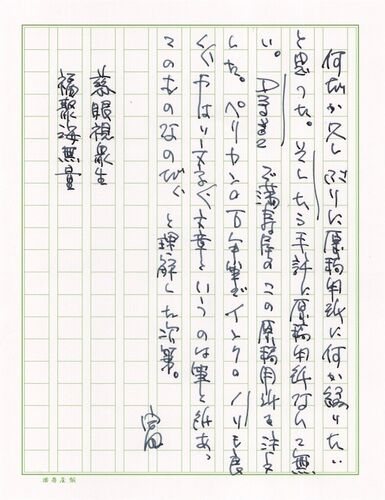 何だか久しぶりに原稿用紙に何か綴りたい
と思った。そしたら手許に原稿用紙なんて無
い。
で満寿屋のこの原稿用紙を注文
した。ペリカンの万年筆だインクのノリも良
く、やはり文字や文章というのは筆と紙あっ
てのものなのだ、と理解した次第。
慈眼視衆生
福聚海無量
満寿屋製